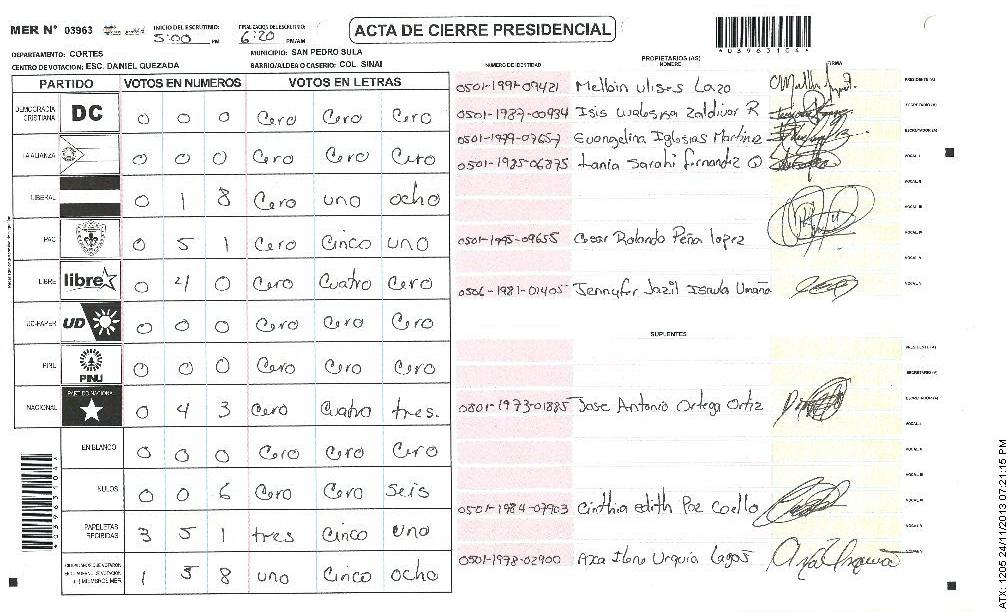 MER N° 03963 INICIO DEL ESCRUTINIO: 5:00 PM FINALIZACION DEL ESCRUTINIO: 6:20 PM/AM ACTA DE CIERRE PRESIDENCIAL *03963104*
DEPARTAMENTO: CORTES MUNICIPIO: SAN PEDRO SULA
CENTRO DE VOTACION: ESC. DANIEL QUEZADA BARRIO/ALDEA O CASERIO: COL. SINAI
PARTIDO VOTOS EN NUMEROS VOTOS EN LETRAS
DEMOCRACIA CRISTIANA DC 0 0 0 Cero Cero Cero
LA ALIANZA 0 0 0 Cero Cero Cero
LIBERAL 0 1 8 Cero uno ocho
PAC 0 5 1 Cero Cinco uno
LIBRE libre 0 4 0 Cero Cuatro Cero
UD-FAPER UD 0 0 0 Cero Cero Cero
PINU PINU 0 0 0 Cero Cero Cero
NACIONAL PARTIDO NACIONAL 0 4 3 Cero Cuatro tres.
EN BLANCO 0 0 0 Cero Cero Cero
NULOS 0 0 6 Cero Cero Seis
PAPELETAS RECIBIDAS 3 5 1 tres Cinco Uno
1 5 8 uno Cinco ocho
*03963104*
NUMERO DE IDENTIDAD PROPIETARIOS (AS) NOMBRE FIRMA
0501-1991-09421 Melbin Ulises Lazo PRESIDENTE (A)
0501-1987-00934 Isis Waleska Zaldivar R SECRETARIO (A)
0501-1999-07657 Evangelina Iglesias Martinez ESCRUTADOR (A)
0501-1985-06875 tania Sarahi fernandez O VOCAL I
VOCAL II
VOCAL III
0501-1995-09655 Cesar Rolando Peña lopez VOCAL IV
VOCAL V
0506-1981-01405 Jennyfer Jazil Isaula Umaña
SUPLENTES
PRESIDENTE (A)
SECRETARIO (A)
0801-1973-01885 Jose Antonio Ortega Ortiz ESCRUTADOR (A)
VOCAL I
VOCAL II
VOCAL III
0501-1984-07903 Cinthia edith Paz Coello VOCAL IV
VOCAL V
0501-1978-02900 Aza Ilana Urquia Lagos
ATX: 1205 24/11/2013 07:21:15 PM